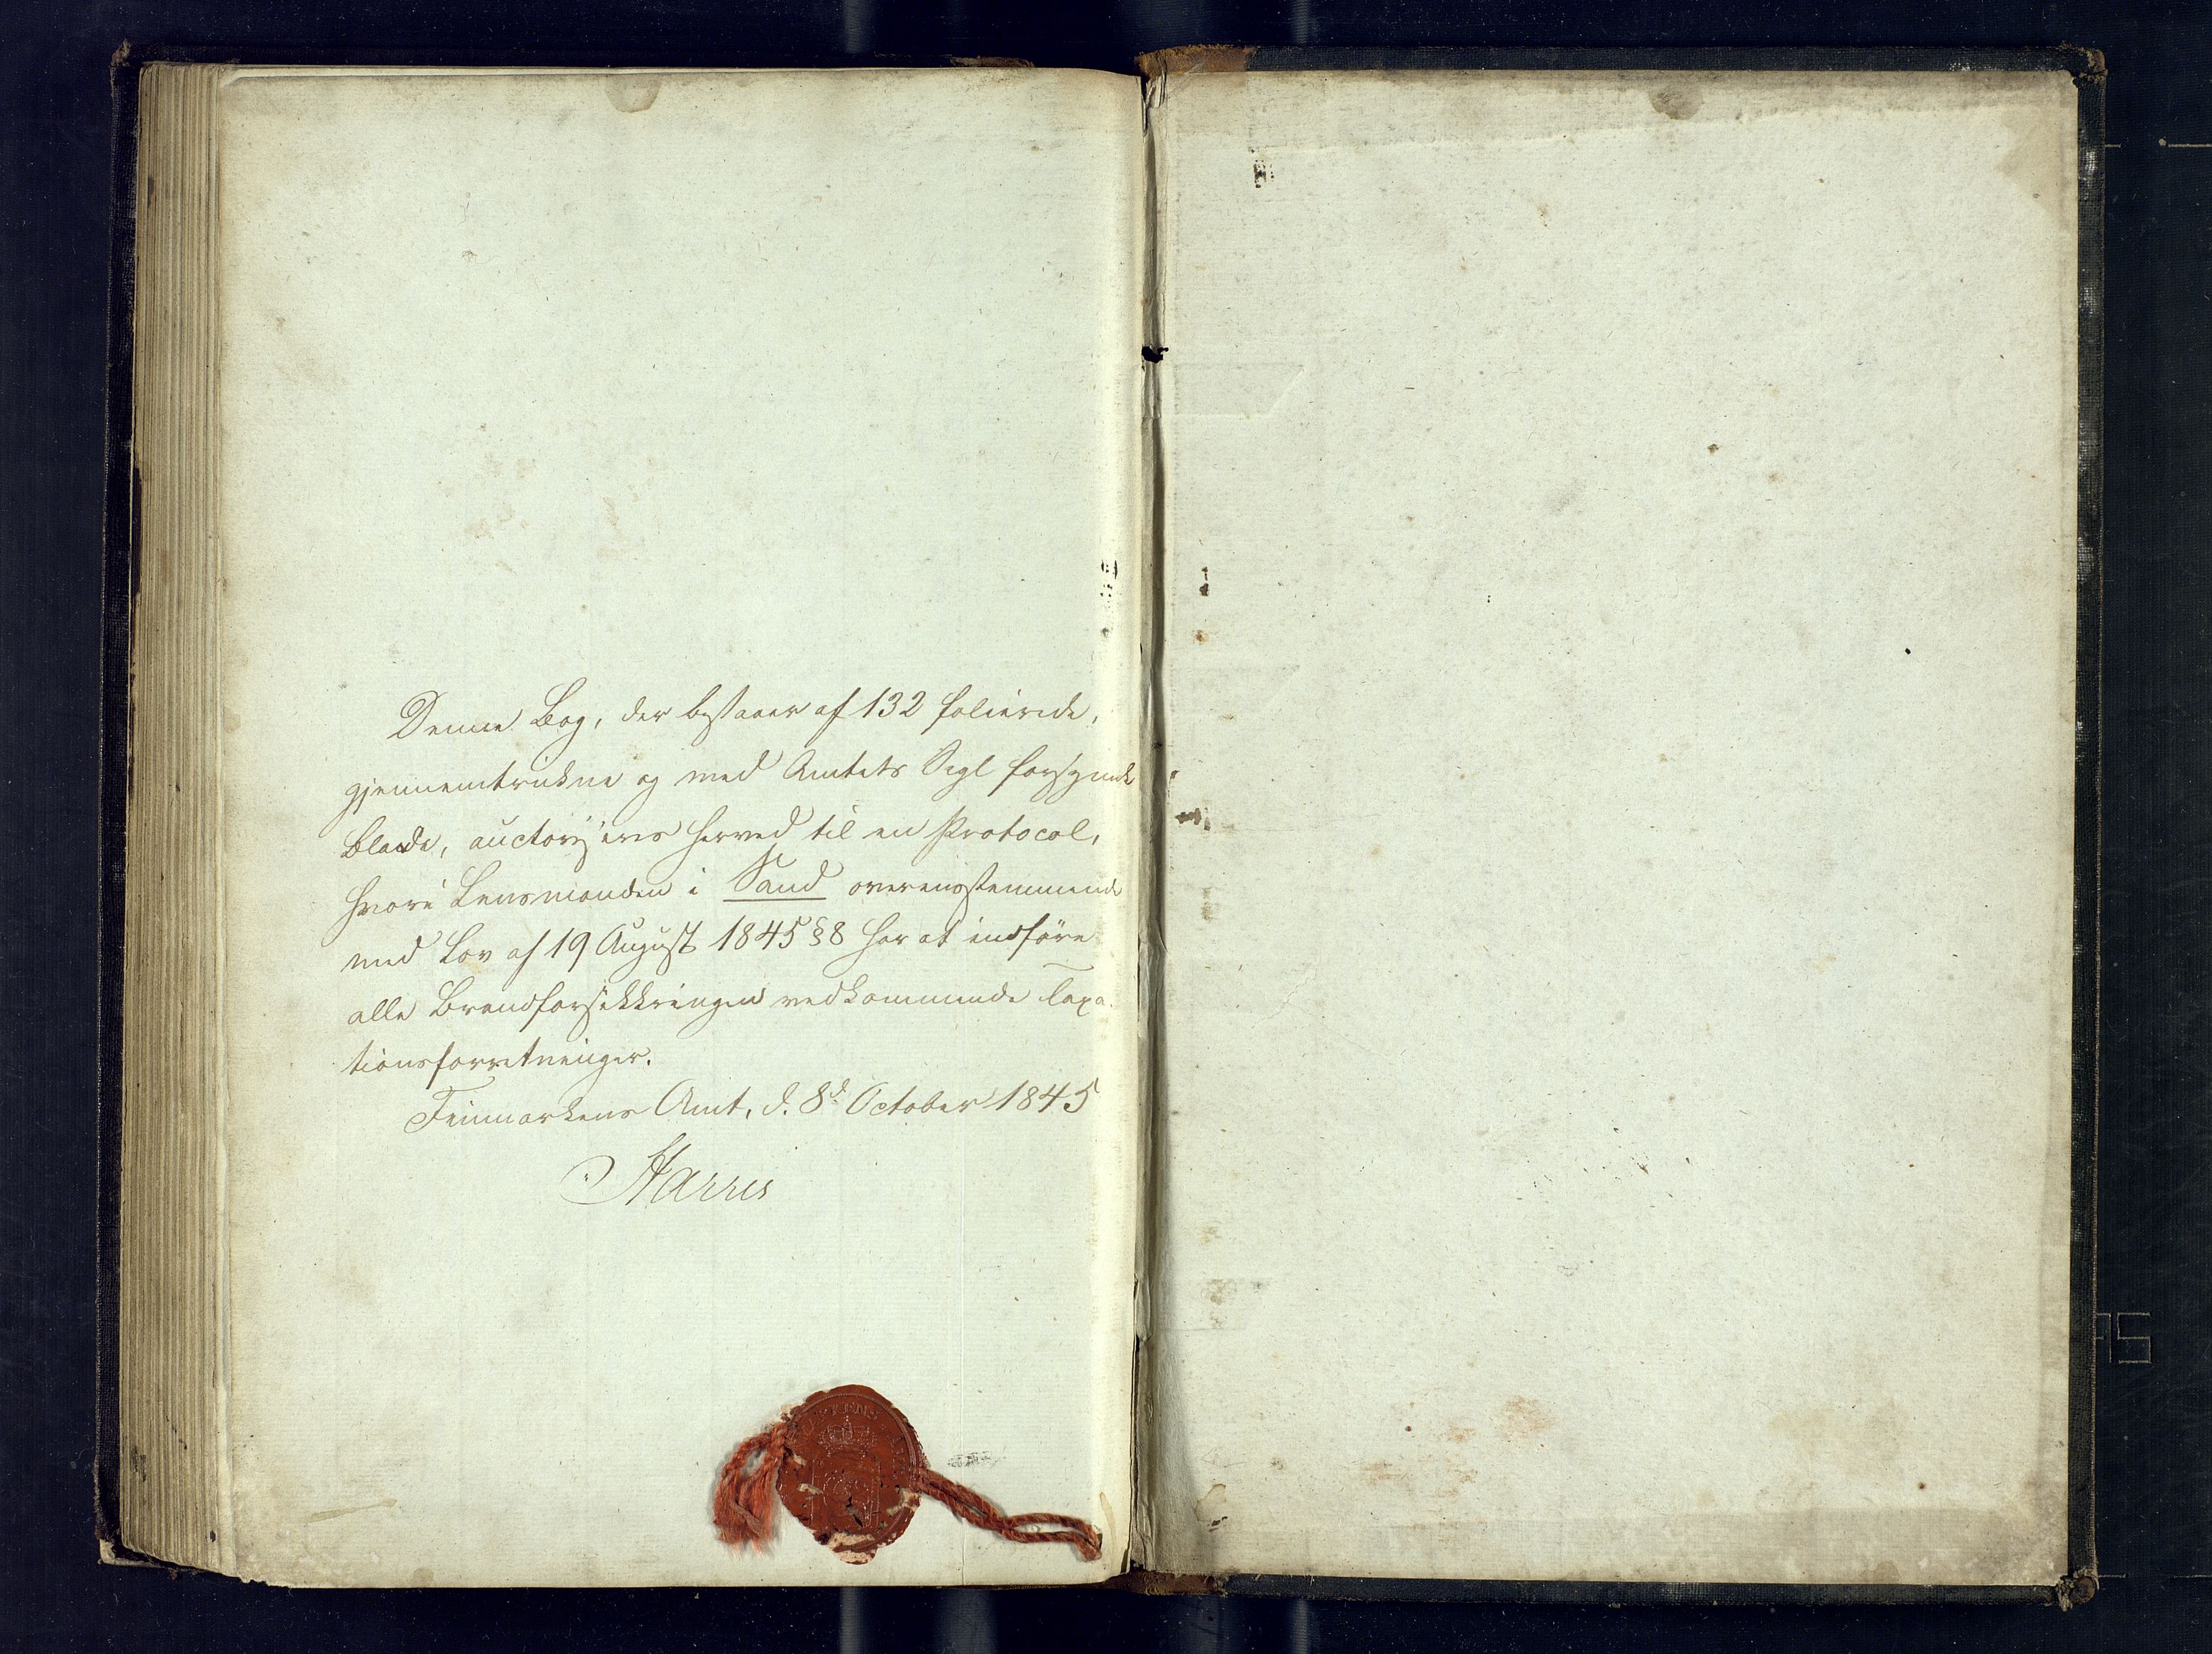 Denne Bog, der bestaaer af 132 folierede,
gjennemtrukne og med Amtets Segl forsynede
Blade, auctoriseres herved til en Protocol,
hvori Lensmanden i Sand overensstemmende
med Lov af 19 August 1845 § 8 har at indføre
alle Brandforsikkringen vedkommende Taxa-
tionsforretninger.
Finmarkens Amt, d. 8d October 1845
Harris